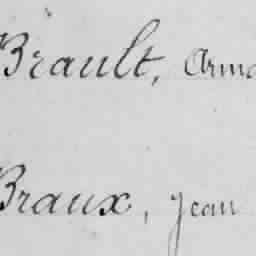 Brault, Arma
Braux, Jean